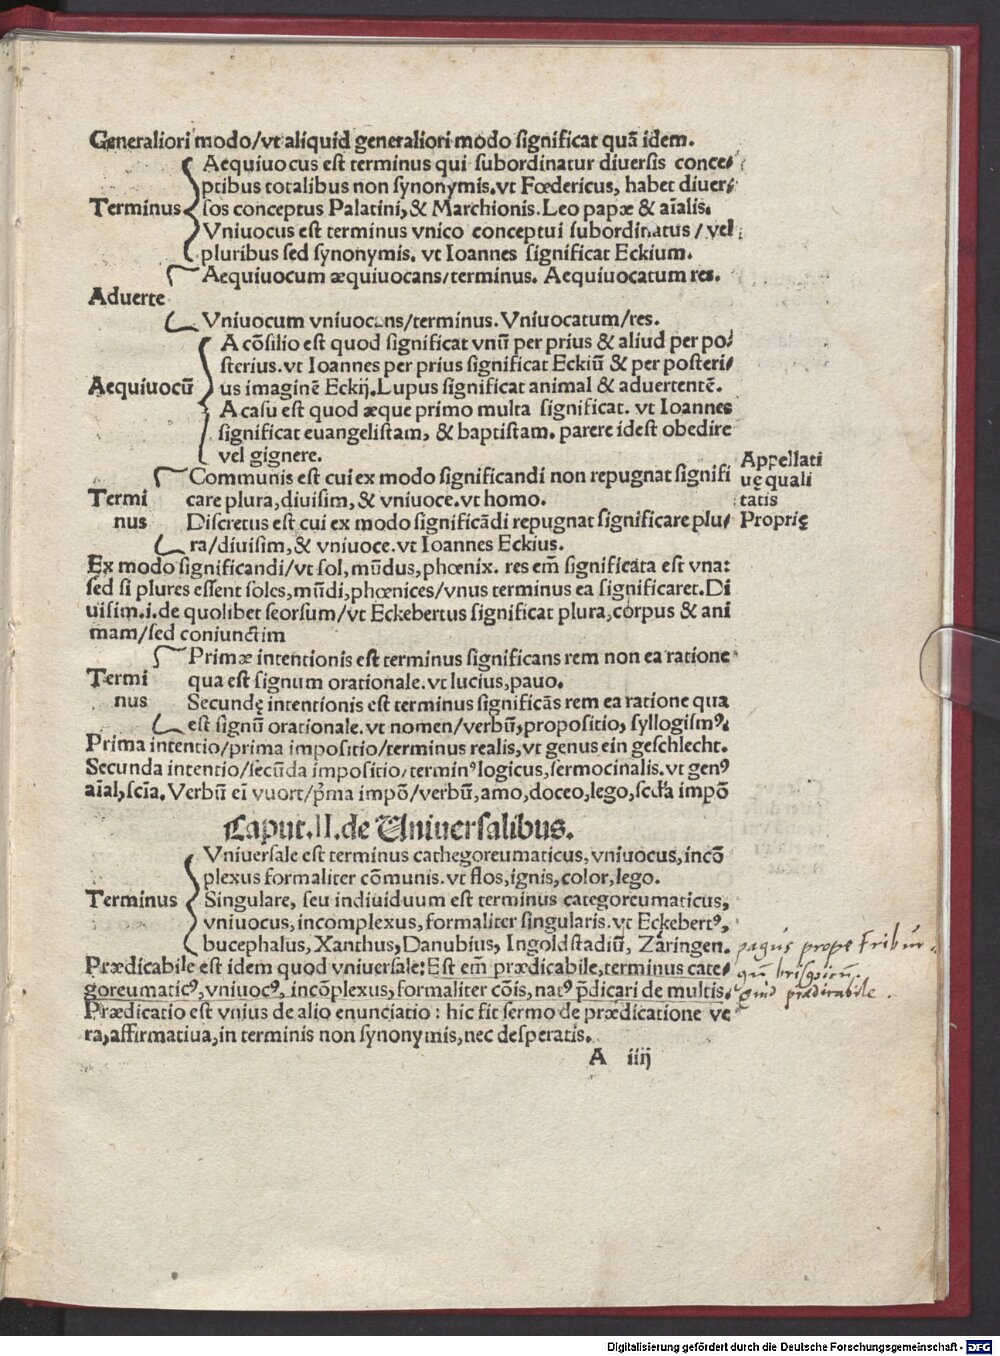 Generaliori modo/vt aliquid generaliori modo significat quã idem.
Aequiuocus est terminus qui subordinatur diuersis conce⸗
ptibus totalibus non synonymis.vt Fœdericus, habet diuer⸗
Terminus sos conceptus Palatini,& Marchionis.Leo papæ & aĩalis.
Vniuocus est terminus vnico conceptui subordinatus/vel
pluribus sed synonymis. vt Ioannes significat Eckium.
Aequiuocum æquiuocans/terminus. Aequiuocatum res.
Aduerte
Vniuocum vniuocans/terminus.Vniuocatum/res.
A cõsilio est quod significat vnũ per prius & aliud per po⸗
sterius.vt Ioannes per prius significat Eckiũ & per posteri⸗
Aequiuocũ us imaginẽ Eckij.Lupus significat animal & aduertentẽ.
A casu est quod æque primo multa significat. vt Ioannes
significat euangelistam, & baptistam. parere idest obedire
vel gignere.
Communis est cui ex modo significandi non repugnat signifi
Termi care plura,diuisim,& vniuoce.vt homo.
nus Discretus est cui ex modo significãdi repugnat significare plu⸗
ra/diuisim,& vniuoce.vt Ioannes Eckius.
Appellati
uę quali
tatis
Proprię
Ex modo significandi/vt sol,mũdus,phœnix. res em̃ significata est vna:
sed si plures essent soles,mũdi,phœnices/vnus terminus ea significaret.Di
uisim.i.de quolibet seorsum/vt Eckebertus significat plura,corpus & ani
mam/sed coniunctim
Primæ intentionis est terminus significans rem non ea ratione
Termi qua est signum orationale.vt lucius,pauo.
nus Secundę intentionis est terminus significãs rem ea ratione qua
est signũ orationale.vt nomen/verbũ,propositio, syllogismꝰ.
Prima intentio/prima impositio/terminus realis,vt genus ein geschlecht.
Secunda intentio/secũda impositio/terminꝰlogicus,sermocinalis.vt genꝰ
aĩal,scĩa.Verbũ eĩ vuort/p̃ma impõ/verbũ,amo,doceo,lego,scd̃a impõ
Caput.II.de Uniuersalibus.
Vniuersale est terminus cathegoreumaticus,vniuocus,incõ
plexus formaliter cõmunis.vt flos,ignis,color,lego.
Terminus Singulare, seu indiuiduum est terminus categoreumaticus,
vniuocus,incomplexus,formaliter singularis.vt Eckebertꝰ,
bucephalus,Xanthus,Danubius, Ingoldstadiũ, Zäringen.
pagus prope Fribur⸗
gũ brisgoicũ
Prædicabile est idem quod vniuersale:Est em̃ prædicabile,terminus cate⸗
goreumaticꝰ,vniuocꝰ,incõplexus,formaliter cõis,natꝰ p̃dicari de multis.
quid prædicabile.
Prædicatio est vnius de alio enunciatio : hic fit sermo de prædicatione ve
ra,affirmatiua,in terminis non synonymis,nec desperatis.
A iiij
Digitalisierung gefördert durch die Deutsche Forschungsgemeinschaft - DFG